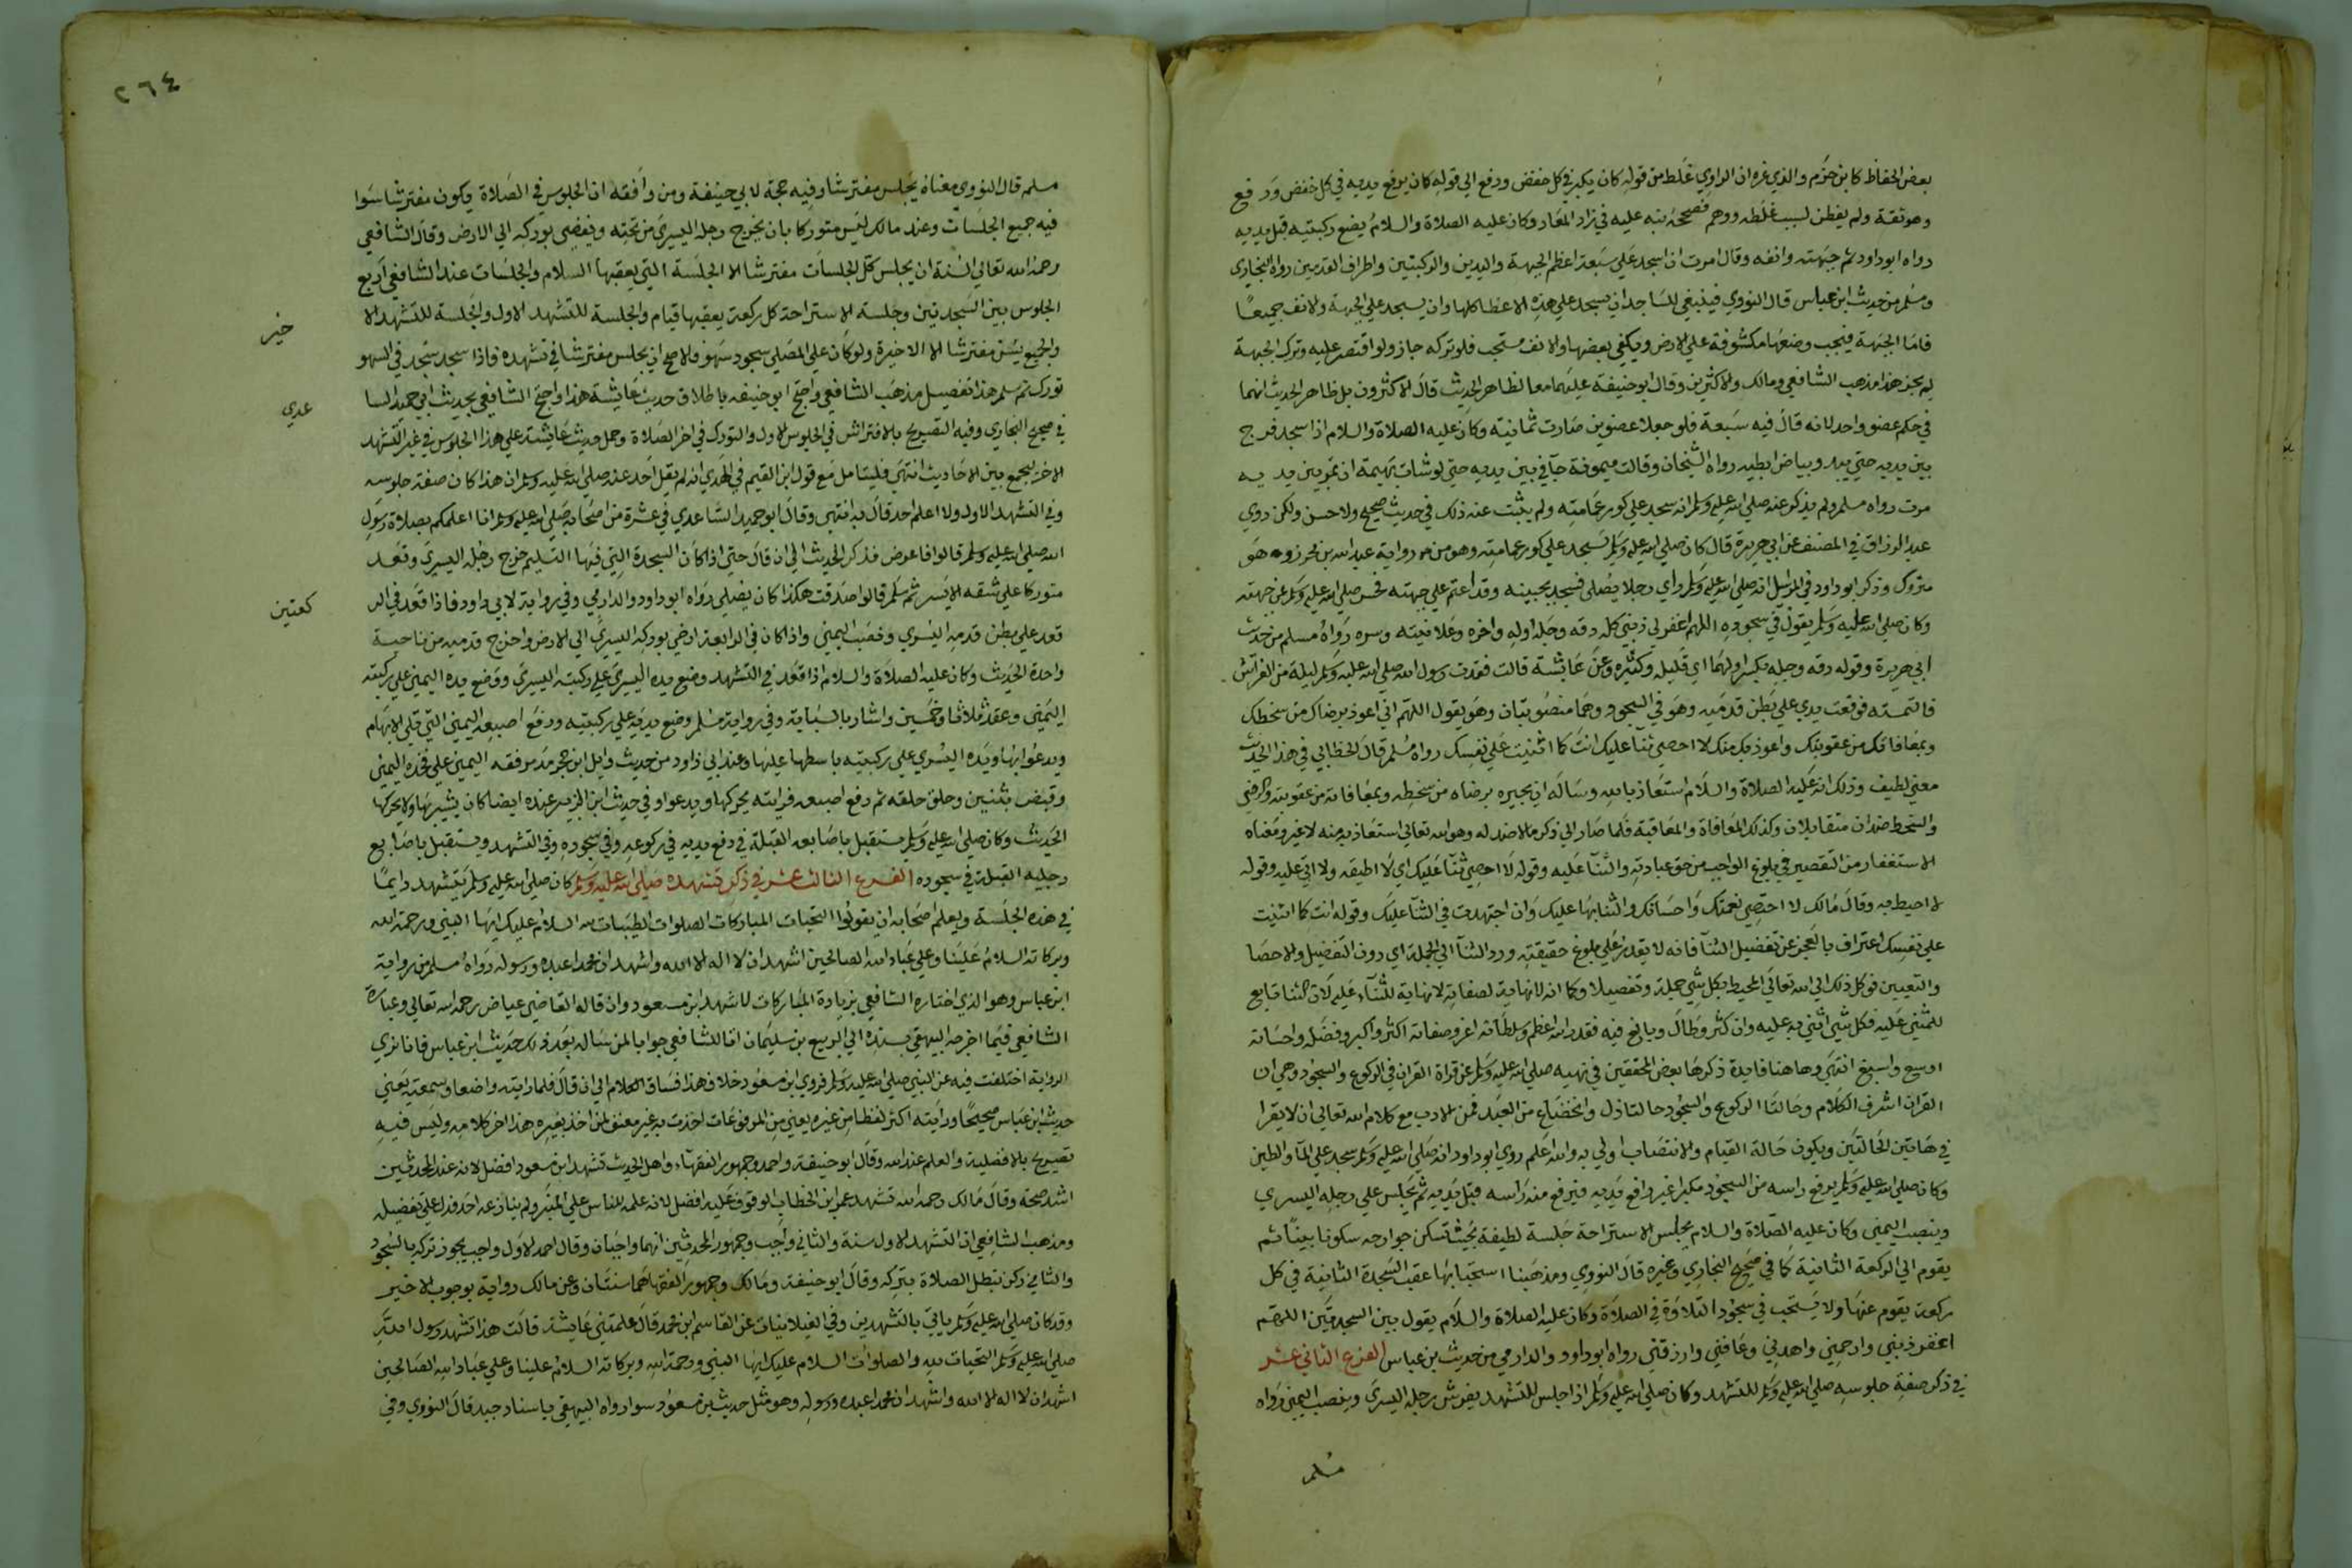 بعض الحفاظ كابن حزم والذي غره ان الراوي غلط من قوله كان يكبر في كل خفض ورفع الي قوله كان يرفع يديه في كل خفض ورفع
وهو ثقة ولم يفطن لسبب غلطه ووهم فصححه نبه عليه في زاد المعاد وكان عليه الصلاة والسلام يضع ركبتيه قبل يديه
رواه ابو داود ثم جبهته وانفه وقال امرت ان اسجد علي سبعة اعظم الجبهة واليدين والركبتين واطراف القدمين رواه البخاري
ومسلم من حديث ابن عباس قال النووي فينبغي للساجد ان يسجد علي هذه الاعضا كلها وان يسجد علي الجبهة والانف جميعًا
فاما الجبهة فيجب وضعها مكشوفة علي الارض ويكفي بعضها والانف مستحب فلو تركه جاز ولو اقتصر عليه وترك الجبهة
لم يجز هذا مذهب الشافعي ومالك والاكثرين وقال ابو حنيفة عليهما معا لظاهر الحديث قال الاكثرون بل ظاهر الحديث انهما
في حكم عضو واحد لانه قال فيه سبعة فلو جعلا عضوين صارت ثمانية وكان عليه الصلاة والسلام اذا سجد فرج
بين يديه حتي يبد وبياض ابطيه رواه الشيخان وقالت ميمونة جافي بين يديه حتي لو شات بهيمة ان تمر بين يديه
مرت رواه مسلم ولم يذكر عنه صلي الله عليه وسلم انه سجد علي كور عمامته ولم يثبت عنه ذلك في حديث صحيح ولا حسن ولكن روي
عبد الرزاق في المصنف عن ابي هريرة قال كان صلي الله عليه وسلم يسجد علي كور عمامته وهو من رواية عبد الله بن محرز وهو
متروك وذكر ابو داود في المراسل انه صلي الله عليه وسلم راي رجلا يصلي فسجد بجبينه وقد اعتم علي جبهته فحسر صلي الله عليه وسلم عن جبهته
وكان صلي الله عليه وسلم يقول في سجوده اللهم اغفر لي ذنبي كله دقه وجله اوله واخره وعلانيته وسره رواه مسلم من حديث
ابي هريرة وقوله دقه وجله بكسر اولهما اي قليله وكثيره وعن عائشة قالت فقدت رسول الله صلي الله عليه وسلم ليلة من الفراش
فالتمسته فوقعت يدي علي بطن قدميه وهو في السجود وهما منصوبتان وهو يقول اللهم اني اعوذ برضاك من سخطك
وبمعافاتك من عقوبتك واعوذ بك منك لا احصي ثنآ عليك انت كما اثنيت علي نفسك رواه مسلم قال الخطابي في هذا الحديث
معني لطيف وذلك انه عليه الصلاة والسلام استعاذ بالله وساله ان يجيره برضاه من سخطه وبمعافاته من عقوبته والرضي
والسخط ضدان متقابلان وكذلك المعافاة والمعاقبة فلما صار الي ذكر مالا ضد له وهو الله تعالي استعاذ به منه لا غير ومعناه
الاستغفار من التقصير في بلوغ الواجب من حق عبادته والثنآ عليه وقوله لا احصي ثنآ عليك اي لا اطيقه ولا اتي عليه وقوله
لا احيط به وقال مالك لا احصي نعمتك واحسانك والثنا بها عليك وان اجتهدت في الثنآ عليك وقوله انت كما اثنيت
علي نفسك اعتراف بالعجز عن تفضيل الثنآ فانه لا يقدر علي بلوغ حقيقته ورد الثنآ الي الجملة اي دون التفضيل والاحصا
والتعيين فوكل ذلك الي الله تعالي المحيط بكل شي جملة وتفصيلا وكما انه لا نهاية لصفاته لا نهاية للثناء عليه لان الثنا تابع
للمثني عليه فكل شي اثني به عليه وان كثر وطال وبالغ فيه فقدر الله اعظم وسلطانه اعز وصفاته اكثر واكبر وفضله واحسانه
اوسع واسبغ انتهي وهاهنا فايدة ذكرها بعض المحققين في نهيه صلي الله عليه وسلم عن قراة القران في الركوع والسجود وهي ان
القران اشرف الكلام وحالتا الركوع والسجود حالتا ذل وانخضاع من العبد فمن الادب مع كلام الله تعالي ان لا يقرا
في هاتين الحالتين ويكون حالة القيام والانتصاب اولي به والله اعلم روي ابو داود انه صلي الله عليه وسلم سجد علي المآ والطين
وكان صلي الله عليه وسلم يرفع راسه من السجود مكبرا غير رافع يديه فيرفع منه راسه قبل يديه ثم يجلس علي رجله اليسري
وينصب اليمني وكان عليه الصلاة والسلام يجلس للاستراحة جلسة لطيفة بحيث تسكن جوارحه سكونا بينًا ثم
يقوم الي الركعة الثانية كما في صحيح البخاري وغيره قال النووي ومذهبنا استحبابها عقب السجدة الثانية في كل
ركعة يقوم عنها ولا يستحب في سجود التلاوة في الصلاة وكان عليه الصلاة والسلام يقول بين السجدتين اللهم
اغفر ذنبي وارحمني واهدني وعافني وارزقني رواه ابو داود والدارمي من حديث بن عباس الفرع الثاني عشر
في ذكر صفة جلوسه صلي الله عليه وسلم للتشهد وكان صلي الله عليه وسلم اذا جلس للتشهد يفرش رجله اليسري وينصب اليمني رواه
مسلم
٢٦٤
مسلم قال النووي معناه يجلس مفترشا وفيه حجة لابي حنيفة ومن وافقه ان الجلوس في الصلاة يكون مفترشا سوا
فيه جميع الجلسات وعند مالك ليس متوركا بان يخرج رجله اليسري من تحته ويفضي بوركه الي الارض وقال الشافعي
رحمه الله تعالي السنة ان يجلس كل الجلسات مفترشا الا الجلسة التي يعقبها السلام والجلسات عند الشافعي اربع
الجلوس بين السجدتين وجلسة الاستراحة كل ركعة يعقبها قيام والجلسة للتشهد الاول والجلسة للتشهد الا
خير
والجميع يسن مفترشا الا الاخيرة ولو كان علي المصلي سجود سهو فالاصح ان يجلس مفترشا في تشهده فاذا سجد سجد في السهو
تورك ثم سلم هذا تفصيل مذهب الشافعي واحتج ابو حنيفه باطلاق حديث عايشة هذا واحتج الشافعي بحديث ابي حميد السا
عدي
في صحيح البخاري وفيه التصريح بالافتراش في الجلوس الاول والتورك في اخر الصلاة وحمل حديث عايشة علي هذا الجلوس في غير التشهد
الاخير ليجمع بين الاحاديث انتهي فليتامل مع قول ابن القيم في الهدي انه لم يقل احد عنه صلي الله عليه وسلم ان هذا كان صفة جلوسه
وفي التشهد الاول ولا اعلم احد قال به انتهي وقال ابو حميد الساعدي في عشرة من اصحابه صلي الله عليه وسلم انا اعلمكم بصلاة رسول
الله صلي الله عليه وسلم قالوا فاعرض فذكر الحديث الي ان قال حتي اذا كان السجدة التي فيها التسليم خرج رجله اليسري وقعد
متوركا علي شقه الايسر ثم سلم قالوا صدقت هكذا كان يصلي رواه ابو داود والدارمي وفي رواية لابي داود فاذا قعد في الر
كعتين
قعد علي بطن قدمه اليسري ونصب اليمني واذا كان في الرابعة افضي بوركه اليسري الي الارض واخرج قدميه من ناحية
واحدة الحديث وكان عليه الصلاة والسلام اذا قعد في التشهد وضع يده اليسري علي ركبته اليسري ووضع يده اليمني علي ركبته
اليمني وعقد ثلاثا وخمسين واشار بالسبابة وفي رواية مسلم وضع يديه علي ركبتيه ورفع اصبعه اليمني التي تلي الابهام
ويدعو بها ويده اليسري علي ركبتيه باسطها عليها وعند ابي داود من حديث وايل ابن حجر مد مرفقه اليمني علي فخذه اليمني
وقبض بثنتين وحلق حلقه ثم رفع اصبعه فرايته يحركها ويدعوا وفي حديث ابن الزبير عنده ايضا كان يشير بها ولا يحركها
الحديث وكان صلي الله عليه وسلم يستقبل باصابعه القبلة في رفع يديه في ركوعه وفي سجوده وفي التشهد ويستقبل باصابع
رجليه القبلة في سجوده الفرع الثالث عشر في ذكر تشهده صلي الله عليه وسلم كان صلي الله عليه وسلم يتشهد دايمًا
في هذه الجلسة ويعلم اصحابه ان يقولوا التحيات المباركات الصلوات الطيبات لله السلام عليك ايها النبي ورحمة الله
وبركاته السلام علينا وعلي عباد الله الصالحين اشهد ان لا اله الا الله واشهد ان محمدا عبده ورسوله رواه مسلم من رواية
ابن عباس وهو الذي اختاره الشافعي بزيادة المباركات لا تشهد ابن مسعود وان قاله القاضي عياض رحمه الله تعالي وعبارة
الشافعي فيما اخرجه البيهقي بسنده الي الربيع بن سليمان انا الشافعي جوابا لمن ساله بعد ذلك حديث ابن عباس فانا نري
الرواية اختلفت فيه عن النبي صلي الله عليه وسلم فروي ابن مسعود خلاف هذا فساق الكلام الي ان قال فلما رايته واضعا وسمعته يعني
حديث ابن عباس صحيحًا ورايته اكثر لفظا من غيره يعني من المرفوعات اخذت به غير معنف لمن اخذ بغيره هذا اخر كلامه وليس فيه
تصريح بالافضلية والعلم عند الله وقال ابو حنيفة واحمد وجمهور الفقهآء واهل الحديث تشهد ابن مسعود افضل لانه عند المحدثين
اشد صحة وقال مالك رحمه الله تشهد عمر ابن الخطاب الموقوف عليه افضل لانه علمه للناس علي المنبر ولم ينازعه احد فدل علي تفضيله
ومذهب الشافعي ان التشهد الاول سنة والثاني واجب وجمهور المحدثين انهما واجبان وقال احمد الاول واجب يجوز تركه بالسجود
والثاني ركن تبطل الصلاة بتركه وقال ابو حنيفة ومالك وجمهور الفقها هما سنتان وعن مالك رواية بوجوب الاخير
وقد كان صلي الله عليه وسلم ياتي بالتشهدين وفي الغيلانيات عن القاسم ابن محمد قال علمتني عايشة قالت هذا تشهد رسول الله
صلي الله عليه وسلم التحيات لله والصلوات السلام عليك ايها النبي ورحمة الله وبركاته السلام علينا وعلي عباد الله الصالحين
اشهد ان لا اله الا الله واشهد ان محمدا عبده ورسوله وهو مثل حديث بن مسعود سوا رواه البيهقي باسناد جيد قال النووي وفي